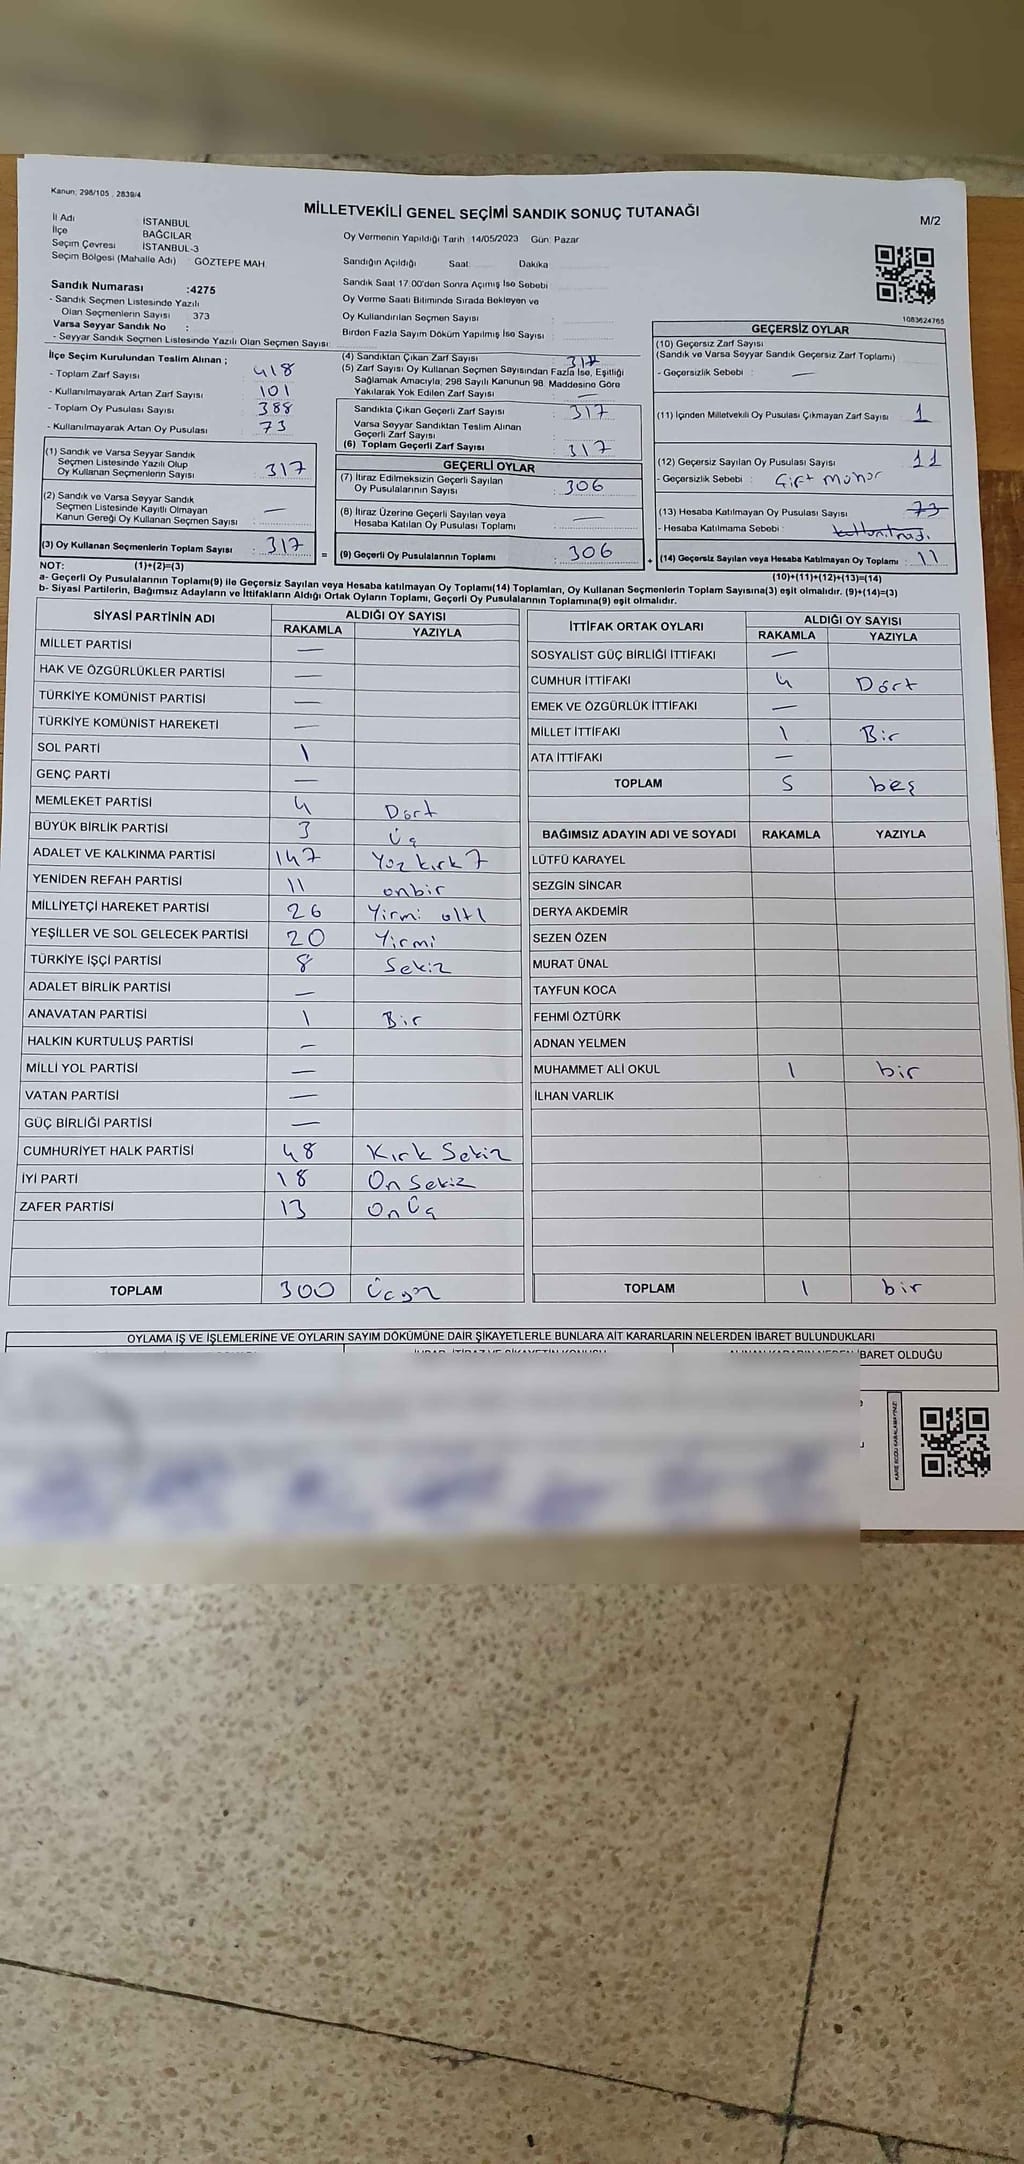 Kanun: 298/105 , 2839/4
MİLLETVEKİLİ GENEL SEÇİMİ SANDIK SONUÇ TUTANAĞI
M/2
İl Adı İSTANBUL
İlçe BAĞCILAR
Seçim Çevresi İSTANBUL-3
Seçim Bölgesi (Mahalle Adı) : GÖZTEPE MAH.
Oy Vermenin Yapıldığı Tarih :14/05/2023 Gün: Pazar
Sandığın Açıldığı Saat: Dakika
Sandık Saat 17.00'den Sonra Açımış İse Sebebi
Oy Verme Saati Bitiminde Sırada Bekleyen ve
Oy Kullandırılan Seçmen Sayısı :
Birden Fazla Sayım Döküm Yapılmış İse Sayısı :
Sandık Numarası :4275
- Sandık Seçmen Listesinde Yazılı
Olan Seçmenlerin Sayısı : 373
Varsa Seyyar Sandık No :
- Seyyar Sandık Seçmen Listesinde Yazılı Olan Seçmen Sayısı:
1083624765
İlçe Seçim Kurulundan Teslim Alınan ;
- Toplam Zarf Sayısı : 418
- Kullanılmayarak Artan Zarf Sayısı : 101
- Toplam Oy Pusulası Sayısı : 388
- Kullanılmayarak Artan Oy Pusulası : 73
(1) Sandık ve Varsa Seyyar Sandık
Seçmen Listesinde Yazılı Olup
Oy Kullanan Seçmenlerin Sayısı : 317
(2) Sandık ve Varsa Seyyar Sandık
Seçmen Listesinde Kayıtlı Olmayan
Kanun Gereği Oy Kullanan Seçmen Sayısı : —
(3) Oy Kullanan Seçmenlerin Toplam Sayısı : 317
(1)+(2)=(3)
(4) Sandıktan Çıkan Zarf Sayısı : 317
(5) Zarf Sayısı Oy Kullanan Seçmen Sayısından Fazla İse, Eşitliği
Sağlamak Amacıyla, 298 Sayılı Kanunun 98. Maddesine Göre
Yakılarak Yok Edilen Zarf Sayısı : —
Sandıkta Çıkan Geçerli Zarf Sayısı : 317
Varsa Seyyar Sandıktan Teslim Alınan
Geçerli Zarf Sayısı :
(6) Toplam Geçerli Zarf Sayısı : 317
GEÇERLİ OYLAR
(7) İtiraz Edilmeksizin Geçerli Sayılan
Oy Pusulalarının Sayısı : 306
(8) İtiraz Üzerine Geçerli Sayılan veya
Hesaba Katılan Oy Pusulası Toplamı : —
= (9) Geçerli Oy Pusulalarının Toplamı : 306
GEÇERSİZ OYLAR
(10) Geçersiz Zarf Sayısı
(Sandık ve Varsa Seyyar Sandık Geçersiz Zarf Toplamı)
- Geçersizlik Sebebi : —
(11) İçinden Milletvekili Oy Pusulası Çıkmayan Zarf Sayısı : 1
(12) Geçersiz Sayılan Oy Pusulası Sayısı : 11
- Geçersizlik Sebebi : Çift Mühür
(13) Hesaba Katılmayan Oy Pusulası Sayısı : 73
- Hesaba Katılmama Sebebi : kullanılmadı.
+ (14) Geçersiz Sayılan veya Hesaba Katılmayan Oy Toplamı : 11
(10)+(11)+(12)+(13)=(14)
NOT:
a- Geçerli Oy Pusulalarının Toplamı(9) ile Geçersiz Sayılan veya Hesaba katılmayan Oy Toplamı(14) Toplamları, Oy Kullanan Seçmenlerin Toplam Sayısına(3) eşit olmalıdır. (9)+(14)=(3)
b- Siyasi Partilerin, Bağımsız Adayların ve İttifakların Aldığı Ortak Oyların Toplam, Geçerli Oy Pusulalarının Toplamına(9) eşit olmalıdır.
SİYASİ PARTİNİN ADI ALDIĞI OY SAYISI
RAKAMLA YAZIYLA
MİLLET PARTİSİ —
HAK VE ÖZGÜRLÜKLER PARTİSİ —
TÜRKİYE KOMÜNİST PARTİSİ —
TÜRKİYE KOMÜNİST HAREKETİ —
SOL PARTİ 1
GENÇ PARTİ —
MEMLEKET PARTİSİ 4 Dört
BÜYÜK BİRLİK PARTİSİ 3 Üç
ADALET VE KALKINMA PARTİSİ 147 Yüz kırk 7
YENİDEN REFAH PARTİSİ 11 onbir
MİLLİYETÇİ HAREKET PARTİSİ 26 Yirmi altı
YEŞİLLER VE SOL GELECEK PARTİSİ 20 Yirmi
TÜRKİYE İŞÇİ PARTİSİ 8 Sekiz
ADALET BİRLİK PARTİSİ —
ANAVATAN PARTİSİ 1 Bir
HALKIN KURTULUŞ PARTİSİ —
MİLLİ YOL PARTİSİ —
VATAN PARTİSİ —
GÜÇ BİRLİĞİ PARTİSİ —
CUMHURİYET HALK PARTİSİ 48 Kırk Sekiz
İYİ PARTİ 18 On Sekiz
ZAFER PARTİSİ 13 On Üç
TOPLAM 300 Üçyüz
İTTİFAK ORTAK OYLARI ALDIĞI OY SAYISI
RAKAMLA YAZIYLA
SOSYALİST GÜÇ BİRLİĞİ İTTİFAKI —
CUMHUR İTTİFAKI 4 Dört
EMEK VE ÖZGÜRLÜK İTTİFAKI —
MİLLET İTTİFAKI 1 Bir
ATA İTTİFAKI —
TOPLAM 5 beş
BAĞIMSIZ ADAYIN ADI VE SOYADI RAKAMLA YAZIYLA
LÜTFÜ KARAYEL
SEZGİN SİNCAR
DERYA AKDEMİR
SEZEN ÖZEN
MURAT ÜNAL
TAYFUN KOCA
FEHMİ ÖZTÜRK
ADNAN YELMEN
MUHAMMET ALİ OKUL 1 bir
İLHAN VARLIK
TOPLAM 1 bir
OYLAMA İŞ VE İŞLEMLERİNE VE OYLARIN SAYIM DÖKÜMÜNE DAİR ŞİKAYETLERLE BUNLARA AİT KARARLARIN NELERDEN İBARET BULUNDUKLARI
İBARET OLDUĞU
KARE KODU KARALAMAYINIZ!